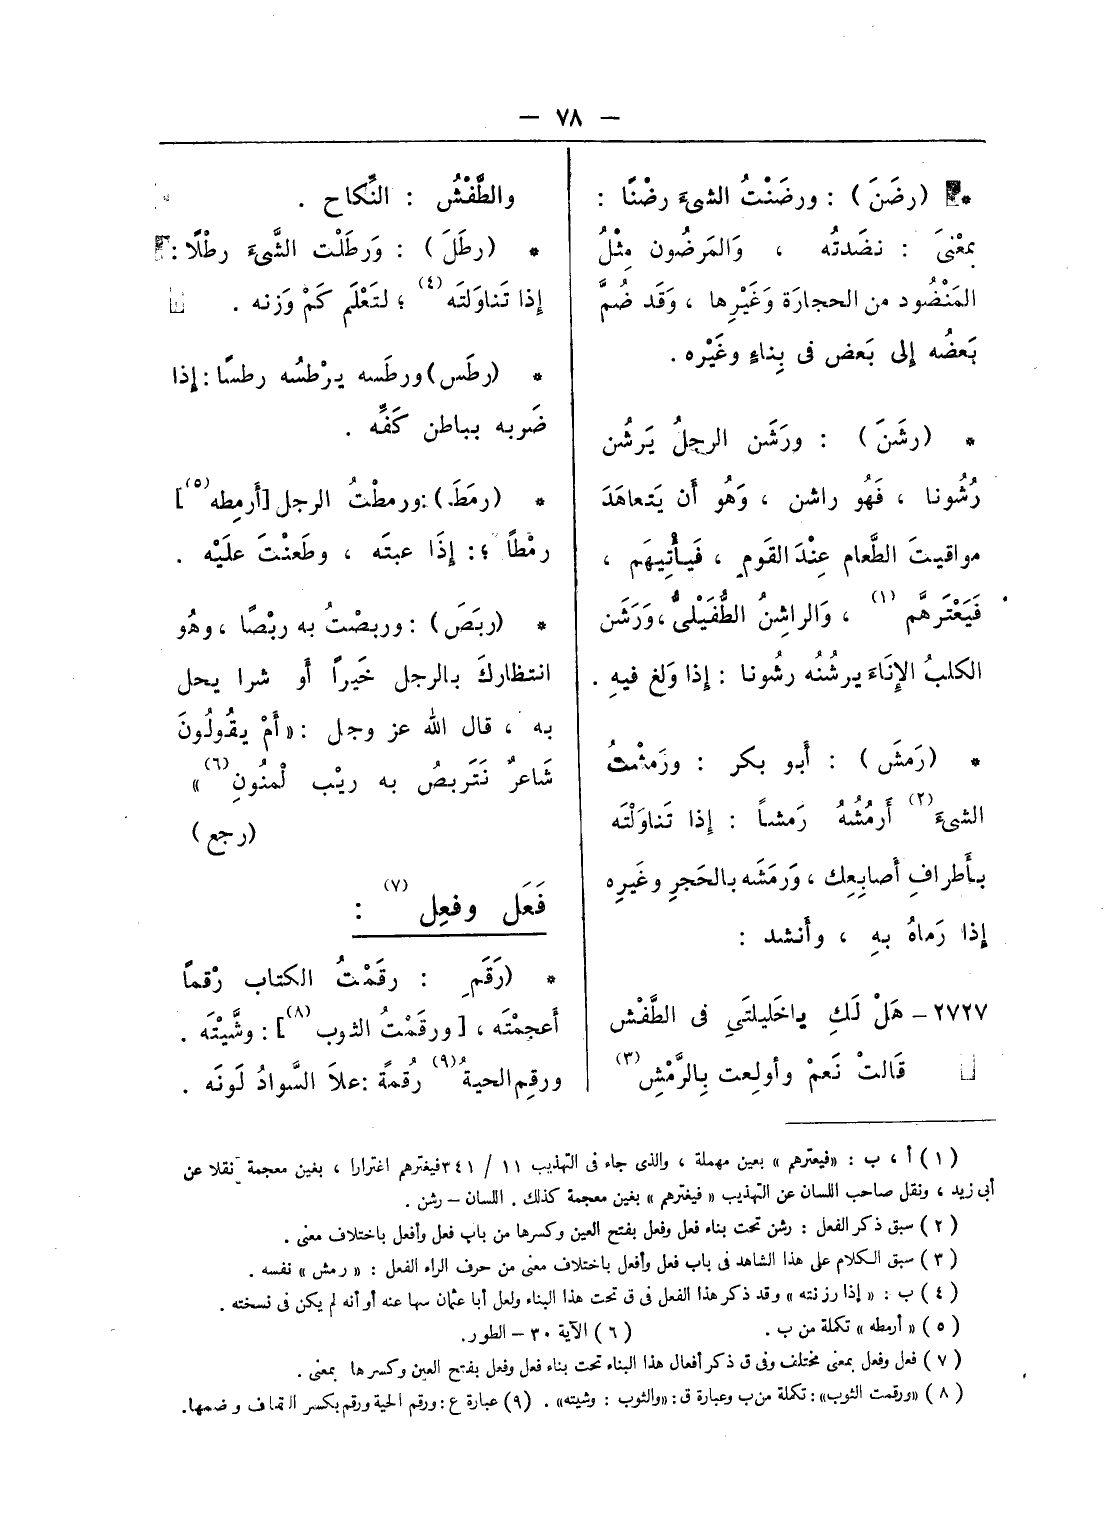 — ٧٨ —
* (رضَنَ) : ورضَنْتُ الشىءَ رضْنًا :
بمعْنىَ : نضَدتُه ، وَالمَرضُون مِثْلُ
المَنْضُود من الحجارَة وَغَيْرِها ، وَقَد ضُمَّ
بَعضُه إلى بَعض فى بِناءٍ وغَيْره .
* (رشَنَ) : ورَشَن الرجلُ يَرشُن
رُشُونا ، فَهُو راشن ، وَهُو أَن يَتعاهَدَ
مواقيتَ الطَّعام عِنْدَ القَوم ، فَيأْتِيهَم ،
فَيَغْتَرهَّم (١) ، وَالراشِنُ الطُّفَيْلىُّ ، وَرَشَن
الكلبُ الإنَاءَ يرشُنُه رشُونا : إذا وَلغ فيهِ .
* (رَمَشَ) : أَبو بكر : ورَمشْتُ
الشىءَ (٢) أَرمُشُهُ رَمشاً : إذا تَناوَلْتَه
بأَطرافِ أصابِعِك ، وَرمَشَه بالحَجرِ وغَيرِه
إذا رَماهُ بهِ ، وأَنشد :
٢٧٢٧ – هَلْ لَكِ ياخَليلتَىِ فى الطَّفْش
قَالتْ نَعمْ وأولِعت بِالرَّمْشِ (٣)
والطَّفْشُ : النِّكاح .
* (رطَلَ) : وَرطَلْت الشَّىءَ رطْلًا :
إذا تَناوَلتَه (٤) ؛ لتَعْلَم كَمْ وَزنه .
* (رطَس) ورطَسه يرْطسُه رطسًا : إذا
ضَربه بباطن كَفِّه .
* (رمَطَ) : ورمطْتُ الرجل [أَرمِطه (٥)]
رمْطاً ؛ : إذَا عبتَه ، وطَعنْتَ علَيْه .
* (ربَصَ) : وربصْتُ به ربْصًا ، وهُو
انتظاركَ بالرجل خَيراً أَو شرا يحل
به ، قال الله عز وجل : « أَمْ يقُولُونَ
شَاعرٌ نَتَربصُ به ريْب لْمنُونِ (٦) »
(رجع)
فَعَل وفعِل (٧) :
* (رَقَم : رقَمْتُ الكتاب رقْماً
أَعجمْتَه ، [ورقَمْتُ الثوب (٨)] : وشَّيْتَه .
ورقِم الحيةُ (٩) رُقمةً : علاَ السَّوادُ لَونَه .
(١) أ ، ب : «فيعترهم» بعين مهملة ، والذى جاء فى التهذيب ١١ / ٣٤١ فيغترهم اغترارا ، بغين معجمة نقلا عن
أبى زيد ، ونقل صاحب اللسان عن التهذيب « فيغترهم » بغين معجمة كذلك . اللسان – رشن .
(٢) سبق ذكر الفعل : رشن تحت بناء فعل وفعل بفتح العين وكسرها من باب فعل وأفعل باختلاف معنى .
(٣) سبق الكلام على هذا الشاهد فى باب فعل وأفعل باختلاف معنى من حرف الراء الفعل : « رمش » نفسه .
(٤) ب : « إذا رزنته » وقد ذكر هذا الفعل فى ق تحت هذا البناء ولعل أبا عثمان سها عنه أو أنه لم يكن فى نسخته .
(٥) « أرمطه » تكملة من ب . (٦) الآية ٣٠ – الطور.
(٧) فعل وفعل بمعنى مختلف وفى ق ذكر أفعال هذا البناء تحت بناء فعل وفعل بفتح العين وكسرها بمعنى .
(٨) «ورقمت الثوب» : تكملة من ب وعبارة ق : «والثوب : وشيته» . (٩) عبارة ع : ورقم الحية ورقم بكسر القاف وضمها.